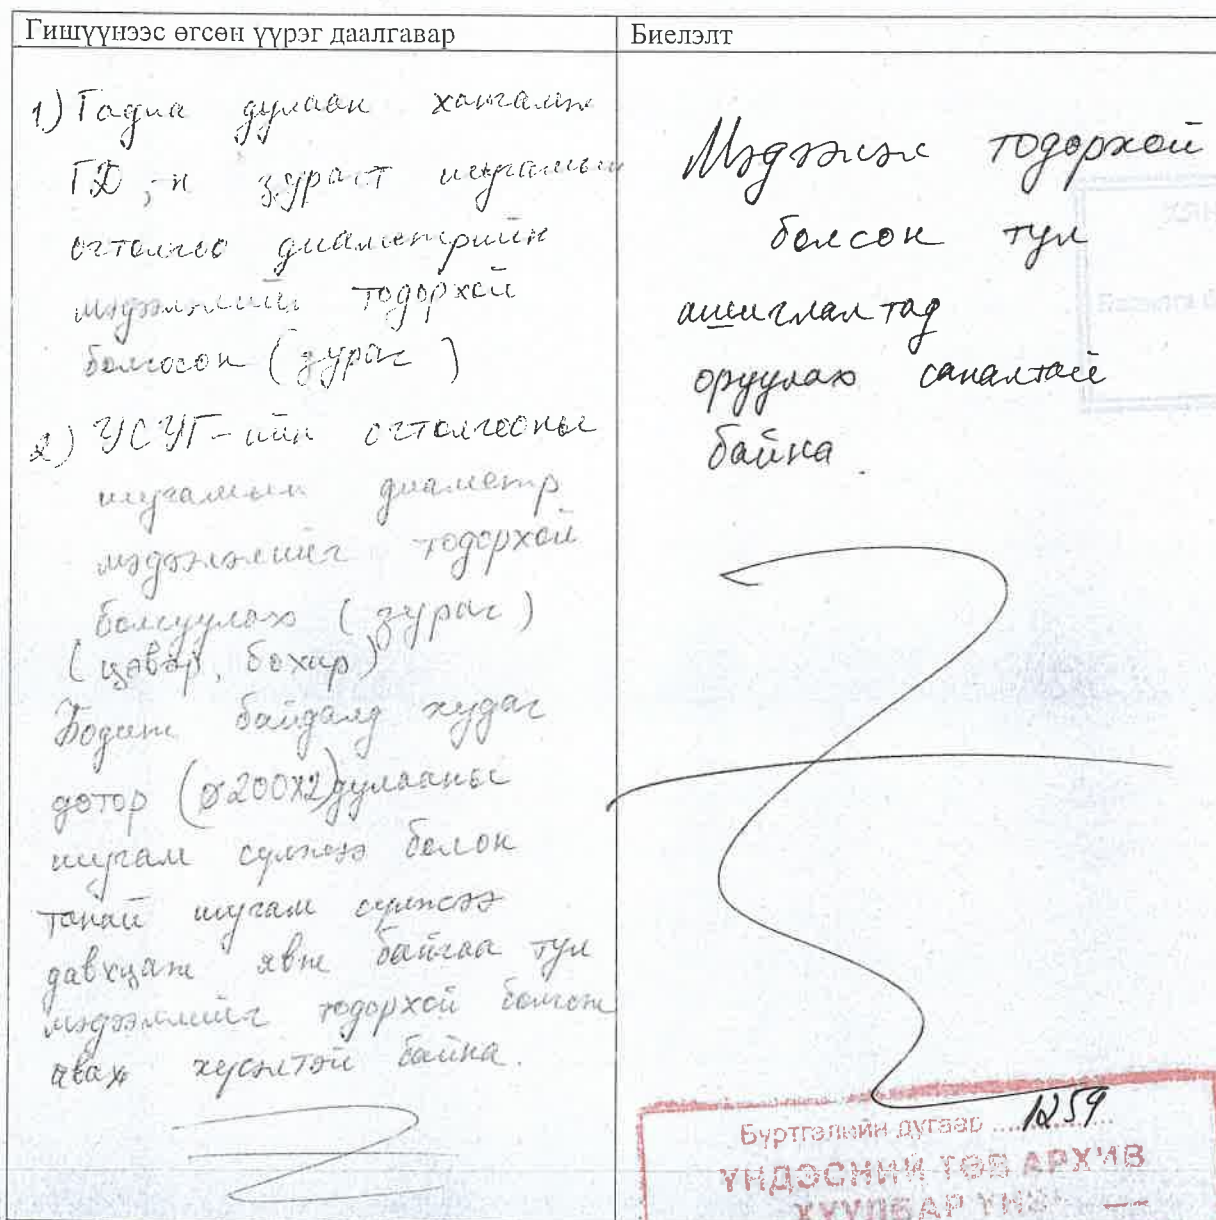 Гишүүнээс өгсөн үүрэг даалгавар
1) Гадна дулаан хангамж
ГД,-н зурагт шугамын
огтолгоо диаметрийн
мэдээллийг тодорхой
болгосон (зураг)
2) УСУГ-ийн огтолгооны
шугамын диаметр
мэдээлэлийг тодорхой
болгуулах (зураг)
(цэвэр, бохир)
Бодит байдалд худаг
дотор (ø200x2) дулааны
шугам сүлжээ болон
танай шугам сүлжээ
давхцаж явж байгаа тул
мэдээллийг тодорхой болгож
авах хүсэлтэй байна.
Биелэлт
Мэдээлэл тодорхой
болсон тул
ашиглалтад
оруулах саналтай
байна.
Бүртгэлийн дугаар ....1259....
ҮНДЭСНИЙ ТӨВ АРХИВ
ХУУЛБАР ҮНЭН